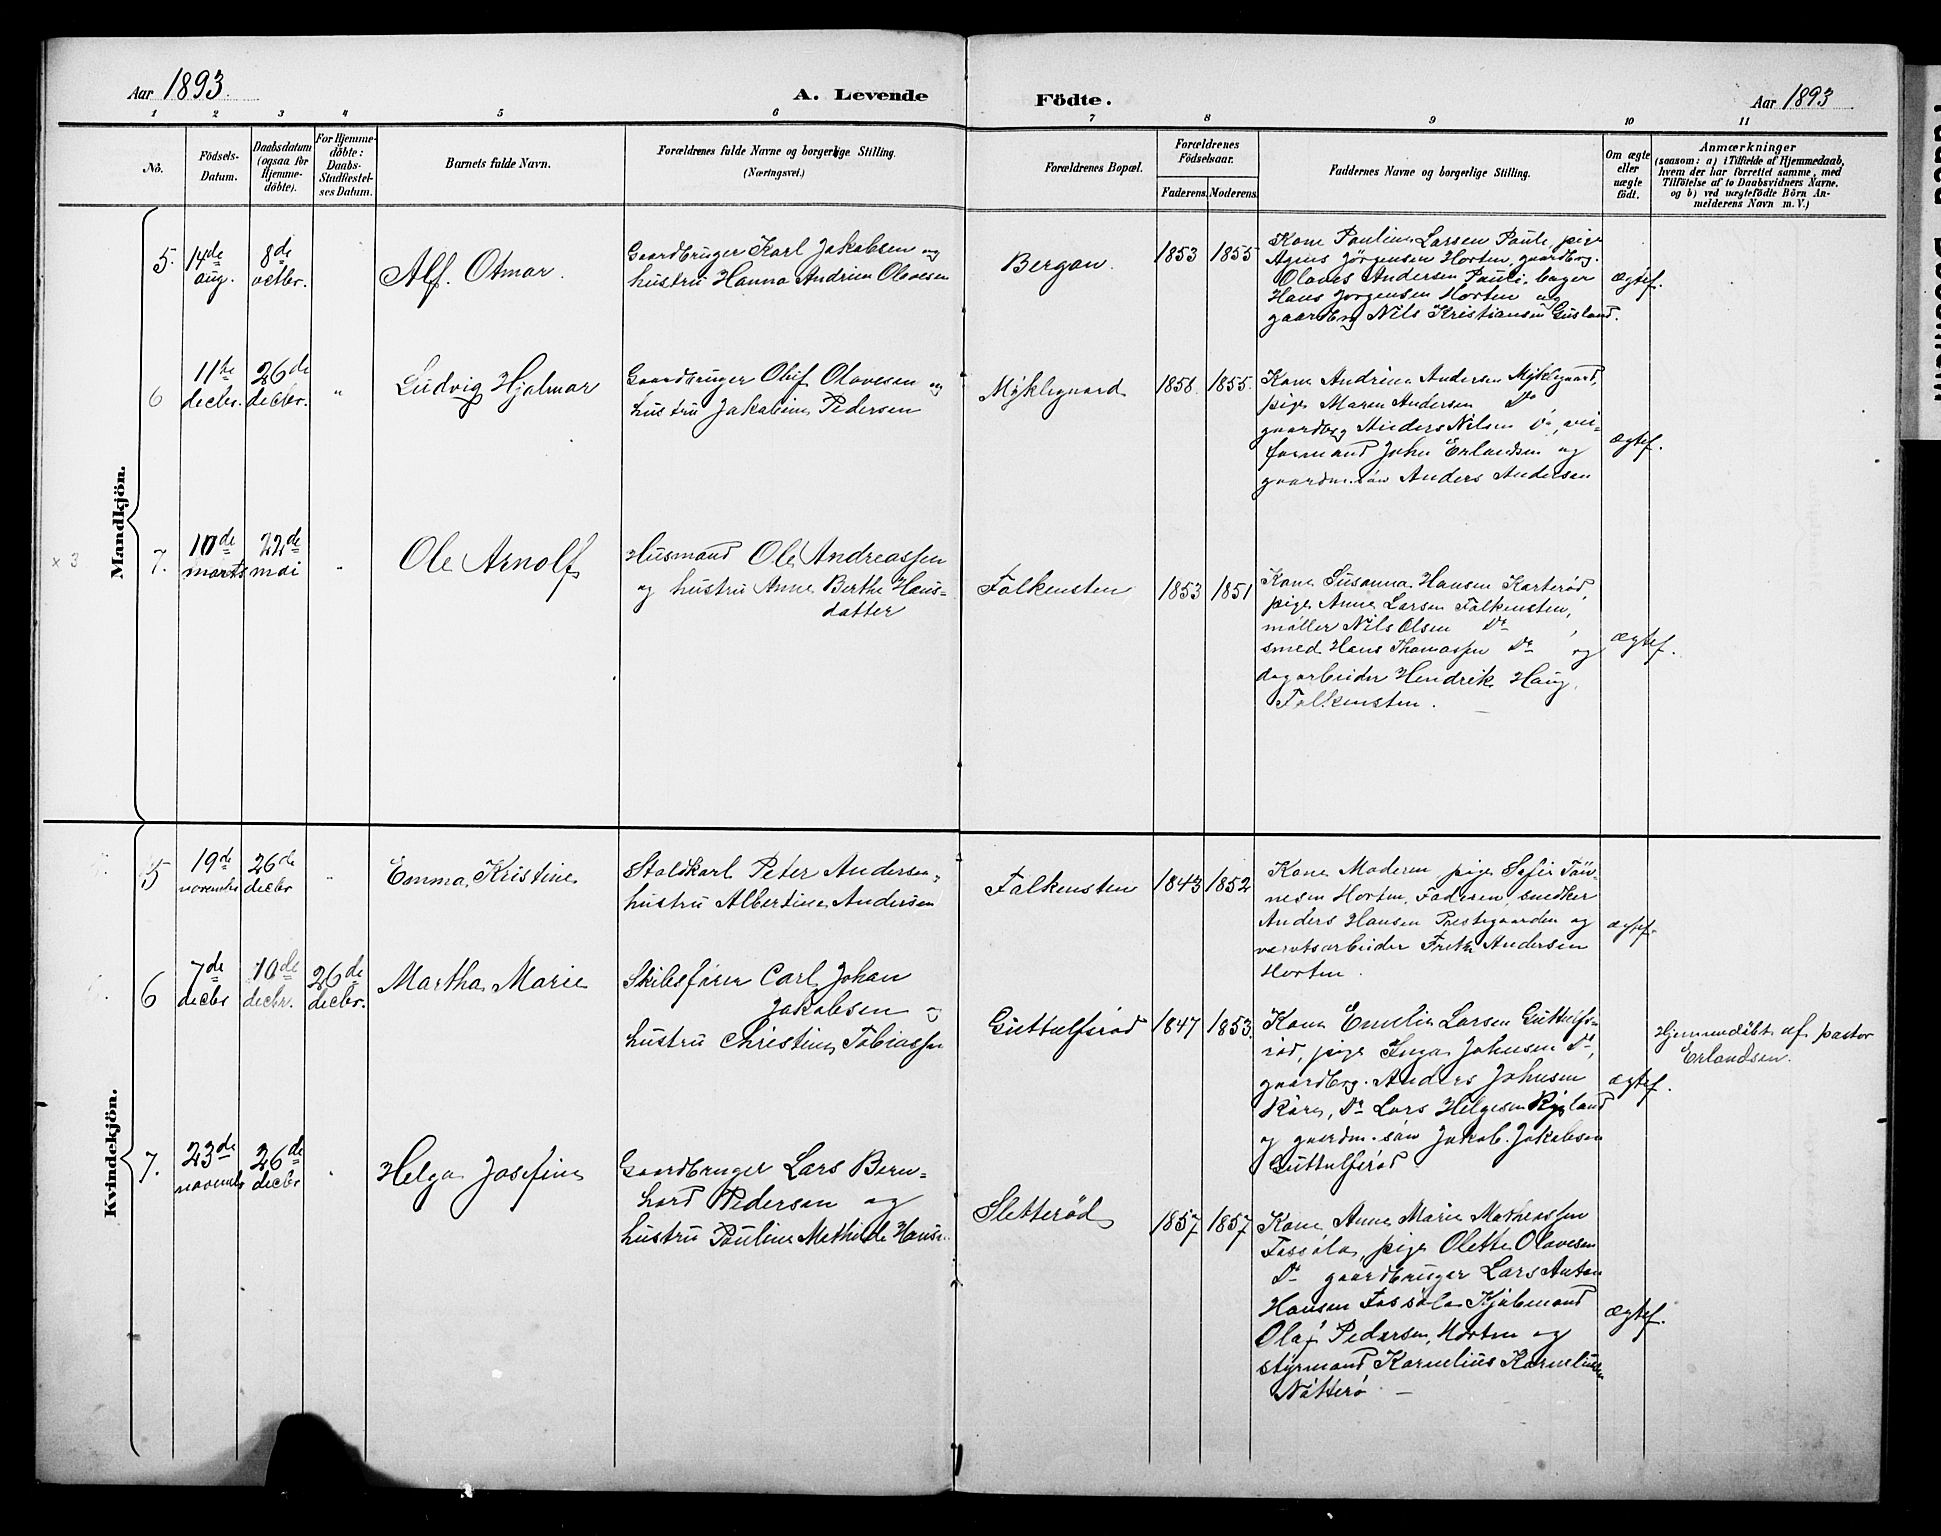 Aar 1893.
A. Levende
Födte.
Aar 1893
1 2 3 4 5 6 7 8 9 10 11
No.
Födsels-
Datum.
Daabsdatum
(ogsaa for
Hjemme-
döbte).
For Hjemme-
döbte:
Daabs-
Stadfæstel-
ses Datum.
Barnets fulde Navn.
Forældrenes fulde Navne og borgerlige Stilling.
(Næringsvei.)
Forældrenes Bopæl.
Forældrenes
Födselsaar.
Faderens. Moderens.
Faddernes Navne og borgerlige Stilling.
Om ægte
eller
uægte
født.
Anmærkninger
(saasom: a) i Tilfælde af Hjemmedaab,
hvem der har forrettet samme, med
Tilföielse af to Daabsvidners Navne.
og b) ved uægtefödte Börn An-
melderens Navn m. V.)
Mandkjön.
5. 14de
aug.
8de
octbr.
Alf. Otmar.
Gaardbruger Karl Jakobsen og
hustru Hanna Andrine Olavesen
Bergan.
1853 1855
Kone Pauline Larsen Paule, pige
Agnes Jørgensen Horten, gaardbrg.
Olaves Andersen Pauli, bager
Hans Jørgensen Horten og
gaardbrg Nils Kristiansen Gusland.
ægtef.
6 11te
decbr.
26de
decbr.
"
Ludvig Hjalmar
Gaardbruger Oluf Olavesen og
hustru Jakobine Pedersen
Myklegaard
1858 1855.
Kone Andrine Andersen Myklegaard,
pige Maren Andersen Do
gaardbrg Anders Nilsen Do, vei-
formand John Erlandsen og
gaardm. søn Anders Andersen
ægtef.
x 3
7. 10de
marts
22de
mai
"
Ole Arnolf
Husmand Ole Andreassen
og hustru Anne Berthe Hans-
datter
Falkensten
1853 1851
Kone Susanna Hansen Karterød,
pige Anne Larsen Falkensten,
møller Nils Olsen Do,
smed Hans Thomassen Do og
dagarbeider Hendrik Haug,
Falkensten.
ægtef.
Kvindekjön.
5 19de
novembr
26de
decbr
"
Emma Kristine
Staldkarl Peter Andersen,
hustru Albertine Andersen
Falkensten
1843 1852
Kone Moderen pige Sofie Tøn-
nesen Horten, Faderen, snedker
Anders Hansen Prestegaarden og
værvtsarbeider Andersen
Horten.
ægtef.
6 7de
decbr
10de
decbr.
26de
decbr.
Martha Marie
Skibsfører Carl Johan
Jakobsen og
hustru Christine Tobiassen
Guttulfsrød
1847 1853.
Kone Emelie Larsen Guttulfs-
rød, pige Inga Johnsen Do,
gaardbrg. Anders Johnsen
Kåre, Do Lars Helgesen
og gaardm. søn Jakob Jakobsen
Guttulfsrød
ægtef.
Hjemmedøbt af pastor
Erlandsen.
7. 23de
novembr
26de
decbr
"
Helga Josefine
Gaardbruger Lars Bern-
hard Pedersen og
hustru Pauline Mathilde Hans.
Sletterød
1857 1857
Kone Anne Marie Mathiassen
Fossola, pige Olette Olavesen
Do gaardbruger Lars Anton
Hansen Fossola Kjøbmand
Olaf Pedersen, Horten og
styrmand Kornelius Korneliussen
Nøtterø. —
ægtef.